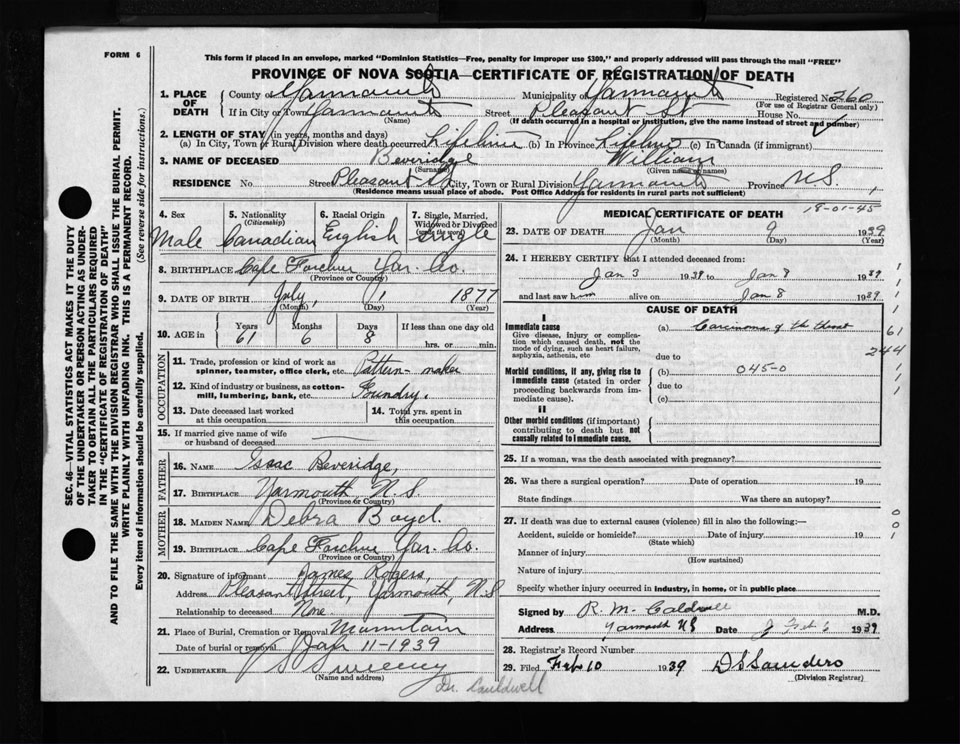 FORM 6
This form if placed in an envelope, marked "Dominion Statistics—Free, penalty for improper use $300," and properly addressed will pass through the mail "FREE"
PROVINCE OF NOVA SCOTIA—CERTIFICATE OF REGISTRATION OF DEATH
SEC. 46—VITAL STATISTICS ACT MAKES IT THE DUTY
OF THE UNDERTAKER OR PERSON ACTING AS UNDER-
TAKER TO OBTAIN ALL THE PARTICULARS REQUIRED
IN THE "CERTIFICATE OF REGISTRATION OF DEATH"
AND TO FILE THE SAME WITH THE DIVISION REGISTRAR WHO SHALL ISSUE THE BURIAL PERMIT.
WRITE PLAINLY WITH UNFADING INK. THIS IS A PERMANENT RECORD.
Every item of information should be carefully supplied. (See reverse side for instructions.)
1. PLACE OF DEATH County of Yarmouth Municipality of Yarmouth Registered No. 260
(For use of Registrar General only)
If in City or Town Yarmouth Street Pleasant St House No.
(Name) (If death occurred in a hospital or institution, give the name instead of street and number)
2. LENGTH OF STAY (in years, months and days)
(a) In City, Town or Rural Division where death occurred Lifetime (b) In Province Lifetime (c) In Canada (if immigrant)
3. NAME OF DECEASED Beveridge William
(Surname) (Given name or names)
RESIDENCE No. Street Pleasant St City, Town or Rural Division Yarmouth Province N.S.
(Residence means usual place of abode. Post Office Address for residents in rural parts not sufficient)
4. Sex 5. Nationality (Citizenship) 6. Racial Origin 7. Single, Married, Widowed or Divorced (write the word)
Male Canadian English Single
8. BIRTHPLACE Cape Forchu Yar. Co.
(Province or Country)
9. DATE OF BIRTH July 1 1877
(Month) (Day) (Year)
10. AGE in Years Months Days If less than one day old
61 6 8 hrs. or min.
OCCUPATION
11. Trade, profession or kind of work as spinner, teamster, office clerk, etc. Pattern-maker
12. Kind of industry or business, as cotton-mill, lumbering, bank, etc. Foundry.
13. Date deceased last worked at this occupation 14. Total yrs. spent in this occupation
15. If married give name of wife or husband of deceased
FATHER
16. NAME Isaac Beveridge,
17. BIRTHPLACE Yarmouth, N.S.
(Province or Country)
MOTHER
18. MAIDEN NAME Debra Boyd.
19. BIRTHPLACE Cape Forchu Yar. Co.
(Province or Country)
20. Signature of informant James Rogers,
Address Pleasant Street, Yarmouth, N.S
Relationship to deceased None
21. Place of Burial, Cremation or Removal Mountain
Date of burial or removal Jan 11-1939
22. UNDERTAKER Sweeney
(Name and address)
Dr. Cauldwell
MEDICAL CERTIFICATE OF DEATH
18-01-45
23. DATE OF DEATH Jan 9 1939
(Month) (Day) (Year)
24. I HEREBY CERTIFY that I attended deceased from:
Jan 3 1939 to Jan 8 1939
and last saw him alive on Jan 8 1939
CAUSE OF DEATH
I
Immediate cause (a) Carcinoma of the throat
Give disease, injury or complication which caused death, not the mode of dying, such as heart failure, asphyxia, asthenia, etc due to
61
244
Morbid conditions, if any, giving rise to immediate cause (stated in order proceeding backwards from immediate cause). (b) 045-0
due to
(c)
II
Other morbid conditions (if important) contributing to death but not causally related to immediate cause.
25. If a woman, was the death associated with pregnancy?
26. Was there a surgical operation? Date of operation 19
State findings Was there an autopsy?
27. If death was due to external causes (violence) fill in also the following:—
Accident, suicide or homicide? Date of injury 19
(State which)
Manner of injury
(How sustained)
Nature of injury
Specify whether injury occurred in industry, in home, or in public place
Signed by R. M. Caldwell M.D.
Address Yarmouth NS Date Feb 6 1939
28. Registrar's Record Number
29. Filed Feb 10 1939 D S Saunders
(Division Registrar)